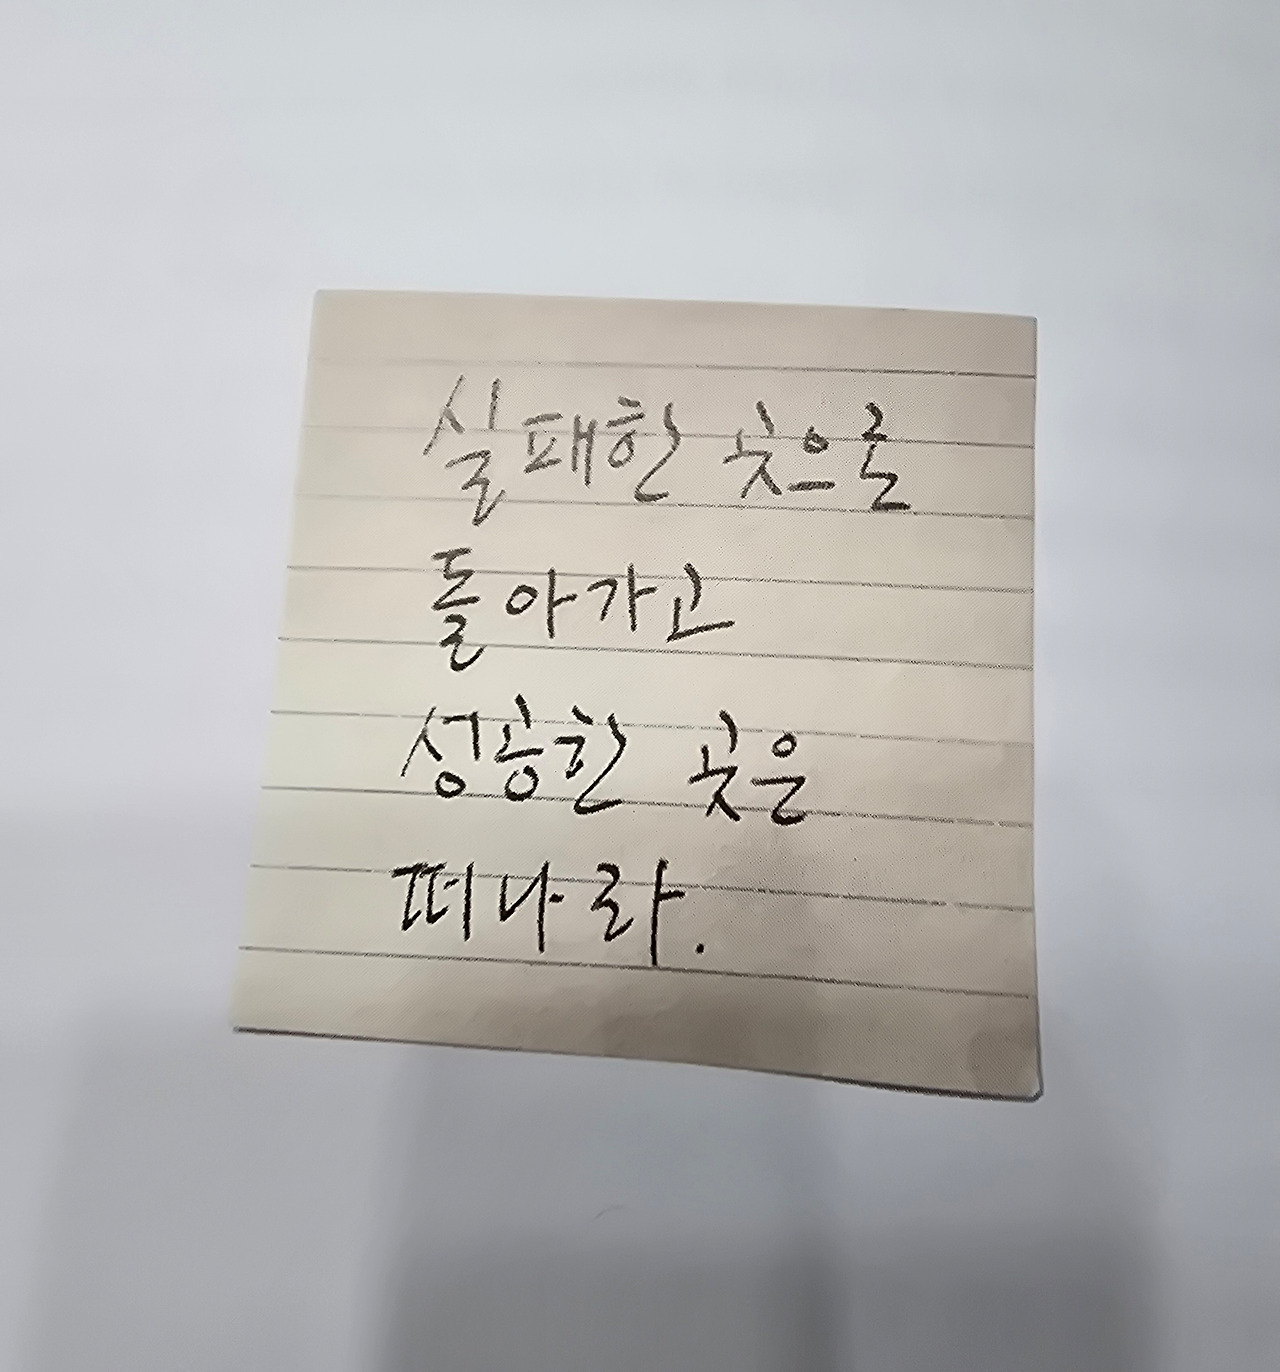 실패한 곳으로
돌아가고
성공한 곳은
떠나라.